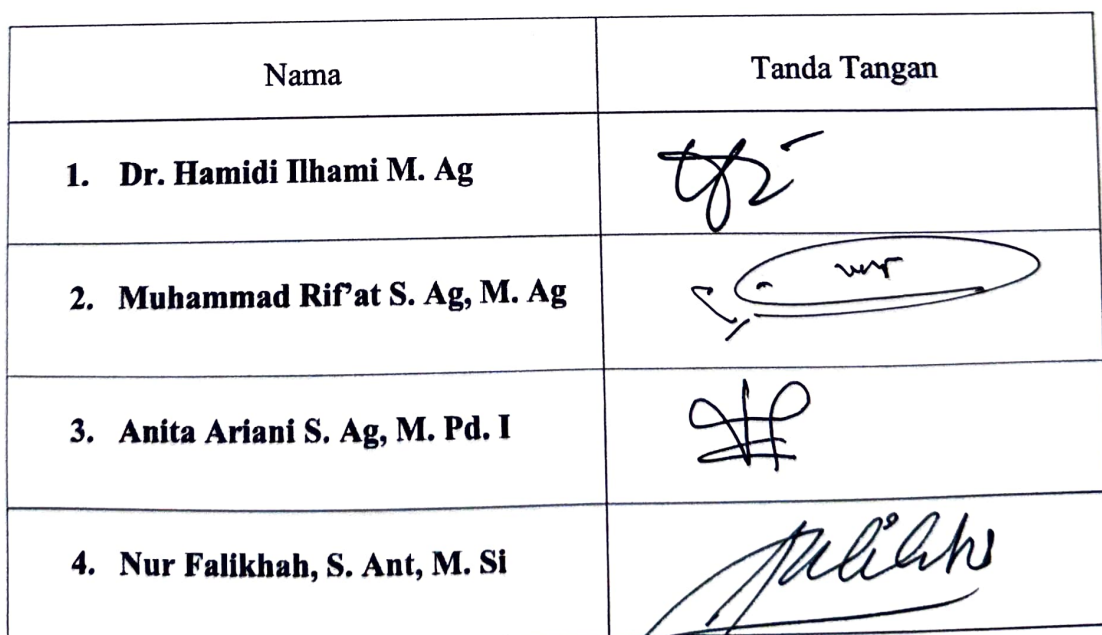 Nama
Tanda Tangan
1. Dr. Hamidi Ilhami M. Ag
2. Muhammad Rif'at S. Ag, M. Ag
3. Anita Ariani S. Ag, M. Pd. I
4. Nur Falikhah, S. Ant, M. Si